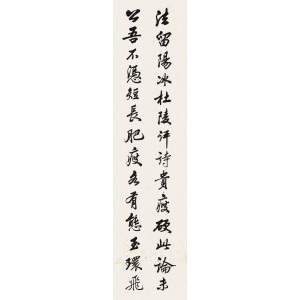 法留陽冰杜陵评詩貴瘦硬此論未
公吾不憑短長肥瘦各有態玉環飛